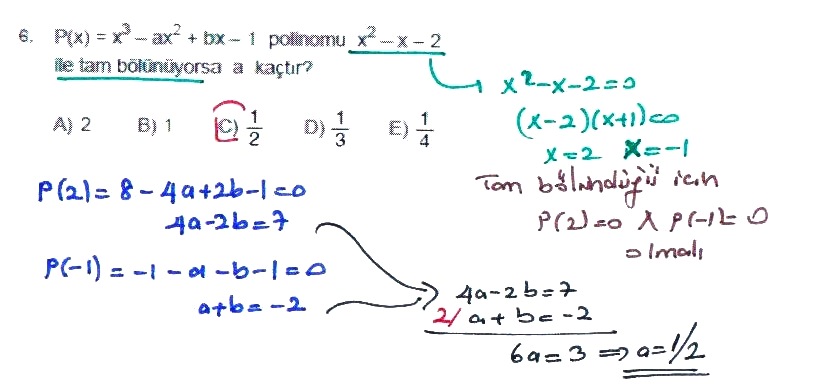 6. P(x) = x³ – ax² + bx – 1 polinomu x² – x – 2
ile tam bölünüyorsa a kaçtır?
A) 2 B) 1 C) 1/2 D) 1/3 E) 1/4
x²-x-2=0
(x-2)(x+1)=0
x=2 x=-1
Tam bölündüğü için
P(2)=0 ∧ P(-1)=0
olmalı
P(2)=8-4a+2b-1=0
4a-2b=7
P(-1)=-1-a-b-1=0
a+b=-2
4a-2b=7
2/ a+b=-2
6a=3 ⇒ a=1/2